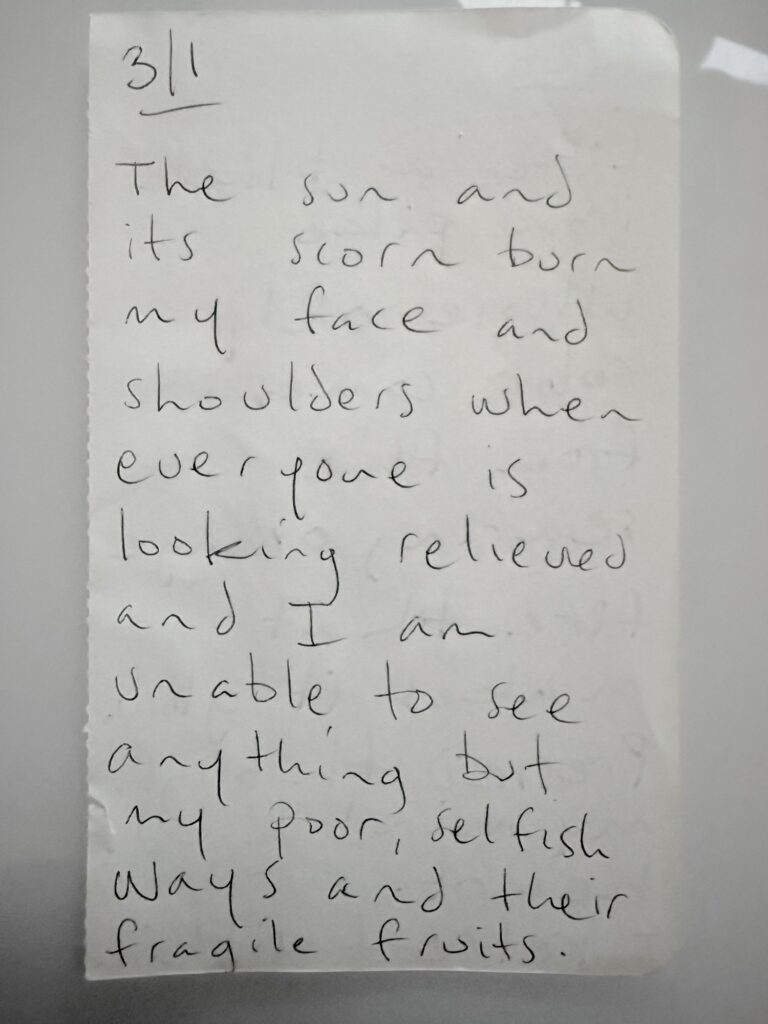 3/1
The sun and
its scorn burn
my face and
shoulders when
everyone is
looking relieved
and I am
unable to see
anything but
my poor, selfish
ways and their
fragile fruits.